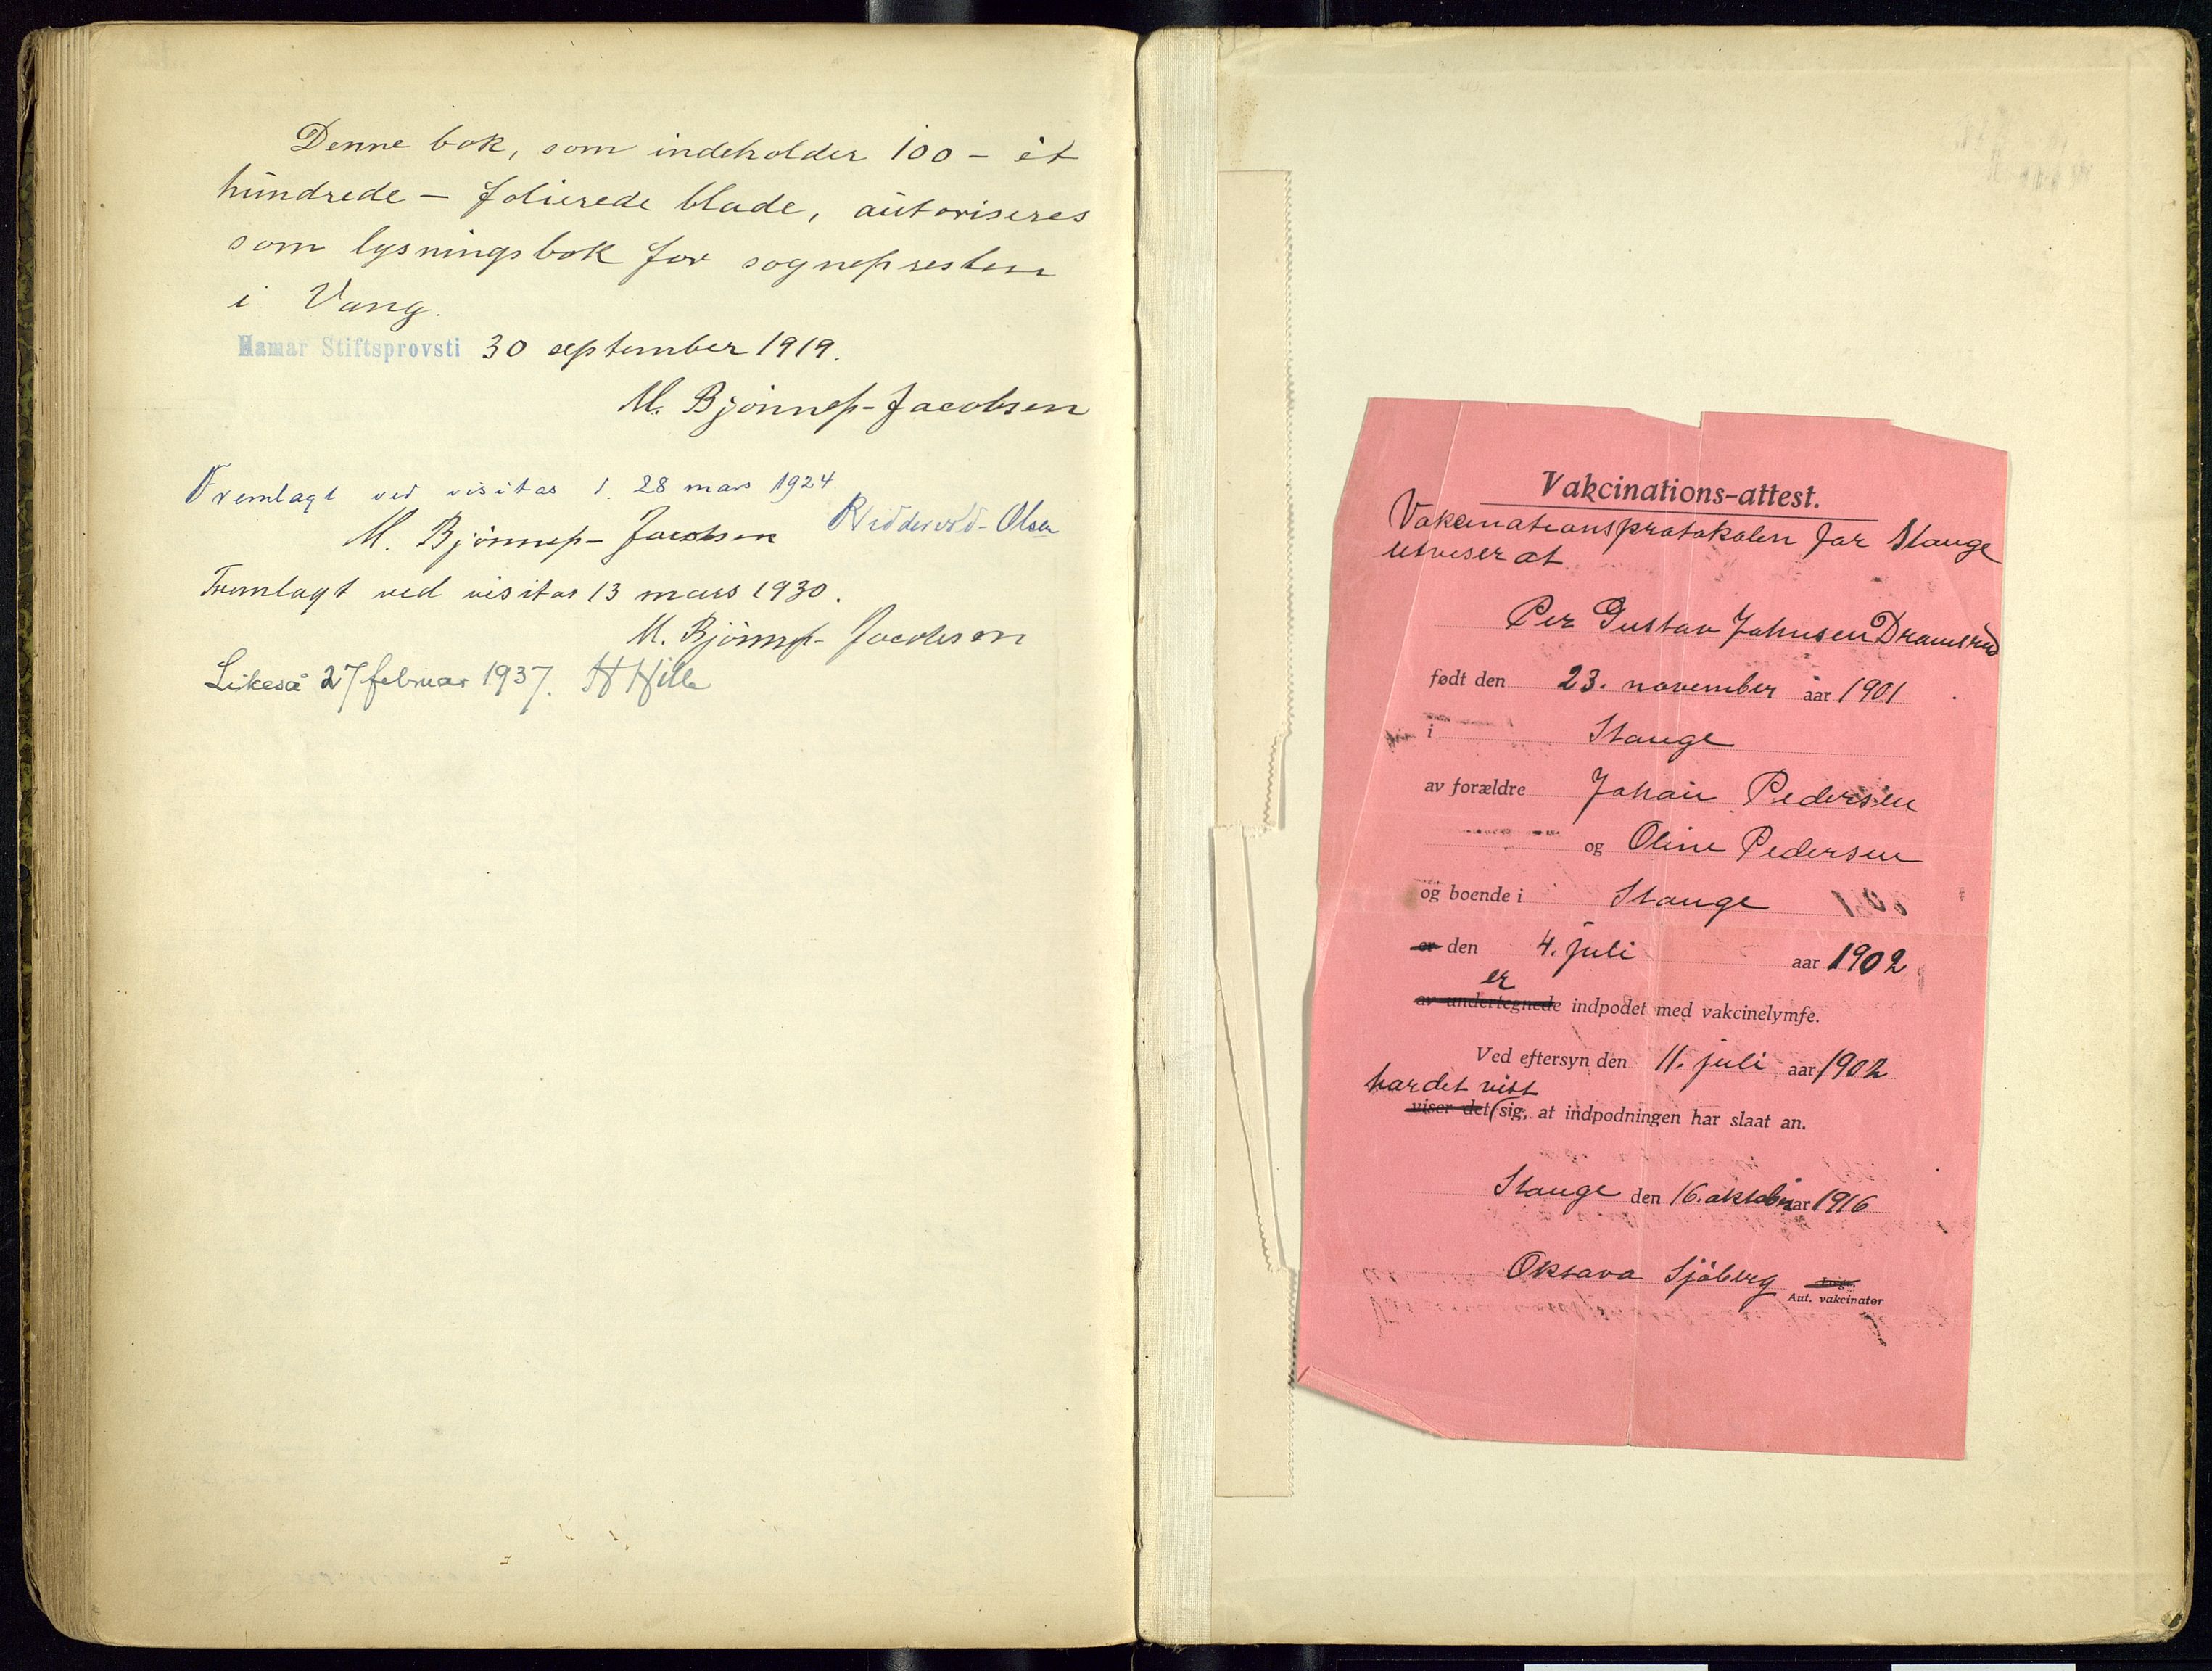 Denne bok, som indeholder 100 - et
hundrede - folierede blade, autoriseres
som lysningsbok for sognepresten
i Vang.
Hamar Stiftsprovsti 30 september 1919.
M. Bjønnes-Jacobsen
Fremlagt ved visitas 28 mars 1924
M. Bjønnes-Jacobsen Ridderold-Olsen
Fremlagt ved visitas 13 mars 1930.
M. Bjønnes-Jacobsen
Likeså 27 februar 1937. H Hille
Vakcinations-attest.
Vakcinationsprotokolen for Stange
utviser at
Per Gustav Johnsen Dramsrud
født den 23. november aar 1901
i Stange
av forældre Johan Pedersen
og Oline Pedersen
og boende i Stange
er den 4. juli aar 1902
er
av undertegnede indpodet med vakcinelymfe.
Ved eftersyn den 11. juli aar 1902
har det vist
viser det sig, at indpodningen har slaat an.
Stange den 16. oktober aar 1916
Oksava Sjøberg
Aut. vakcinatør